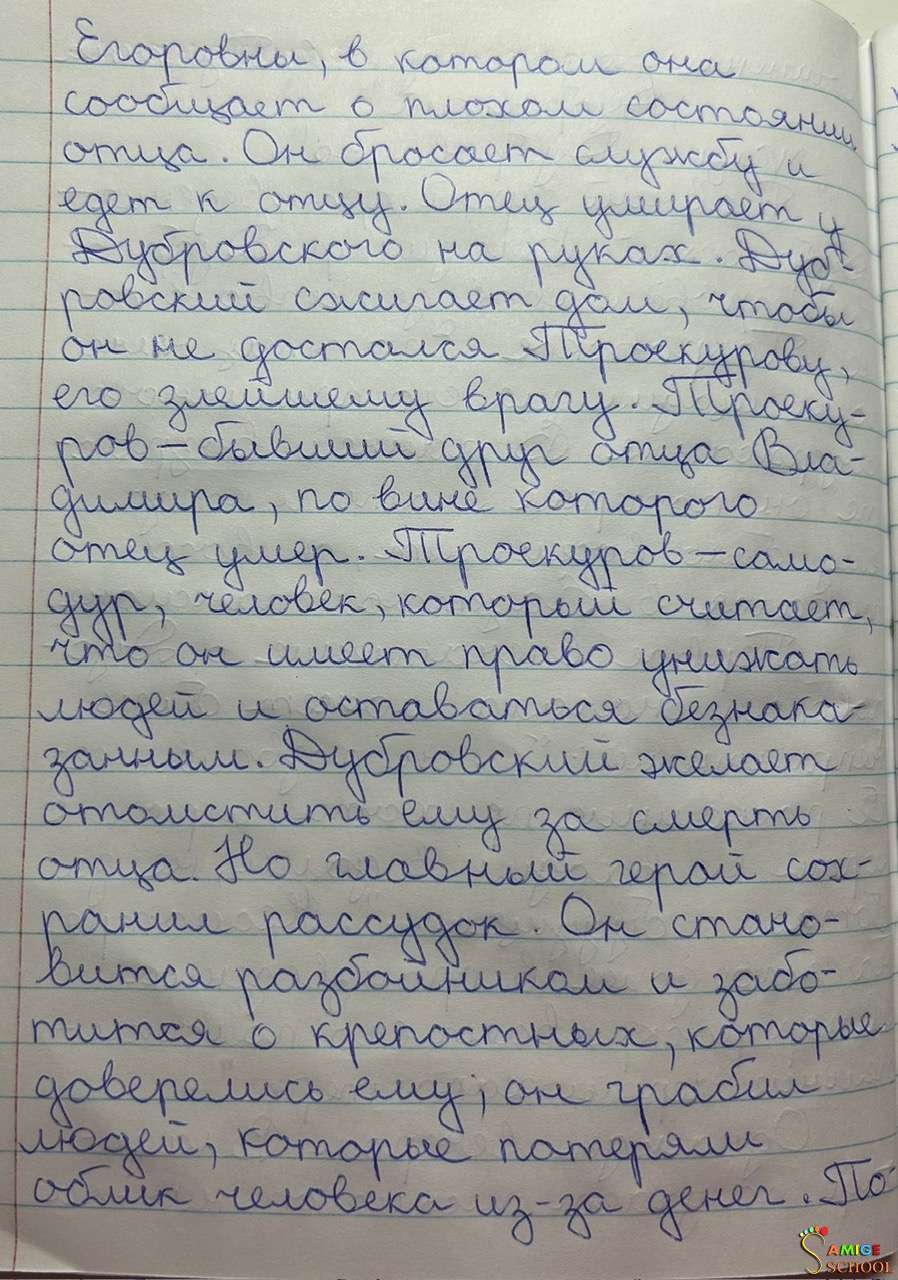 Егоровны, в котором она
сообщает о плохом состоянии
отца. Он бросает службу и
едет к отцу. Отец умирает у
Дубровского на руках. Дуб-
ровский сжигает дом, чтобы
он не достался Троекурову,
его злейшему врагу. Троеку-
ров – бывший друг отца Вла-
димира, по вине которого
отец умер. Троекуров – само-
дур, человек, который считает,
что он имеет право унижать
людей и оставаться безнака-
занным. Дубровский желает
отомстить ему за смерть
отца. Но главный герой сох-
ранил рассудок. Он стано-
вится разбойником и забо-
тится о крепостных, которые
доверелись ему, он грабил
людей, которые потеряли
облик человека из-за денег. По-
AMIGE
SCHOOL